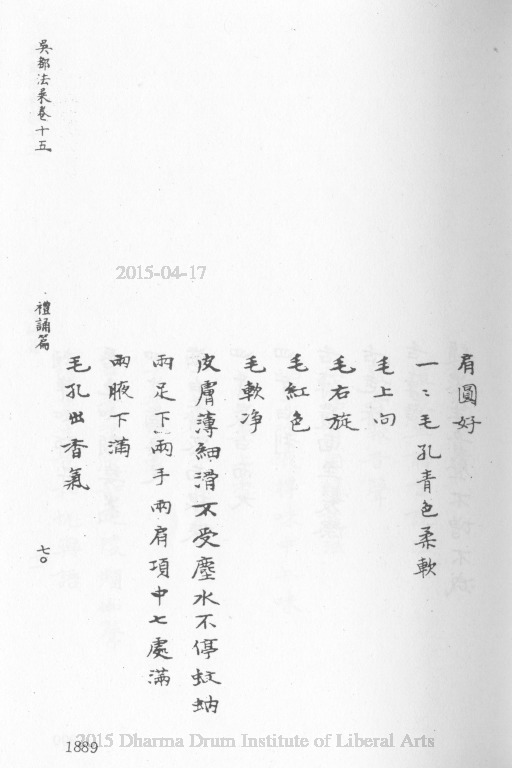 肩圓好
一〻毛孔青色柔軟
毛上向
毛右旋
毛紅色
毛軟净
皮膚薄細滑不受塵水不停蚊蚋
兩足下兩手兩肩項中七處滿
兩腋下滿
毛孔出香氣
吳都法乘卷十五
禮誦篇
七〇
1889
2015-04-17
2015 Dharma Drum Institute of Liberal Arts